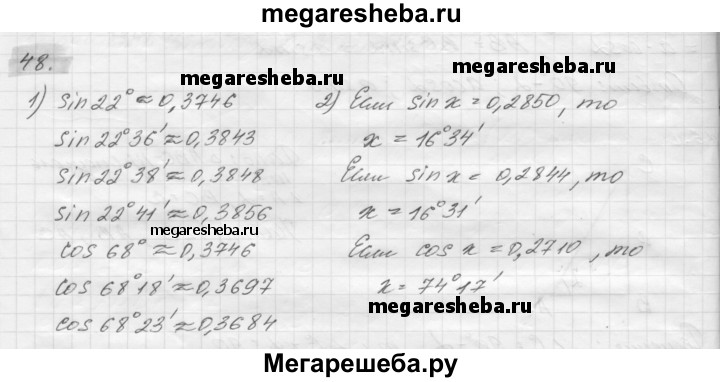 megaresheba.ru
48.
1) sin 22° ≈ 0,3746
sin 22° 36′ ≈ 0,3843
sin 22° 38′ ≈ 0,3848
sin 22° 41′ ≈ 0,3856
cos 68° ≈ 0,3746
cos 68° 18′ ≈ 0,3697
cos 68° 23′ ≈ 0,3684
2) Если sin x = 0,2850, то
x = 16° 34′
Если sin x = 0,2844, то
x = 16° 31′
Если cos x = 0,2710, то
x = 74° 17′
megaresheba.ru
megaresheba.ru
megaresheba.ru
megaresheba.ru
Мегарешеба.ру